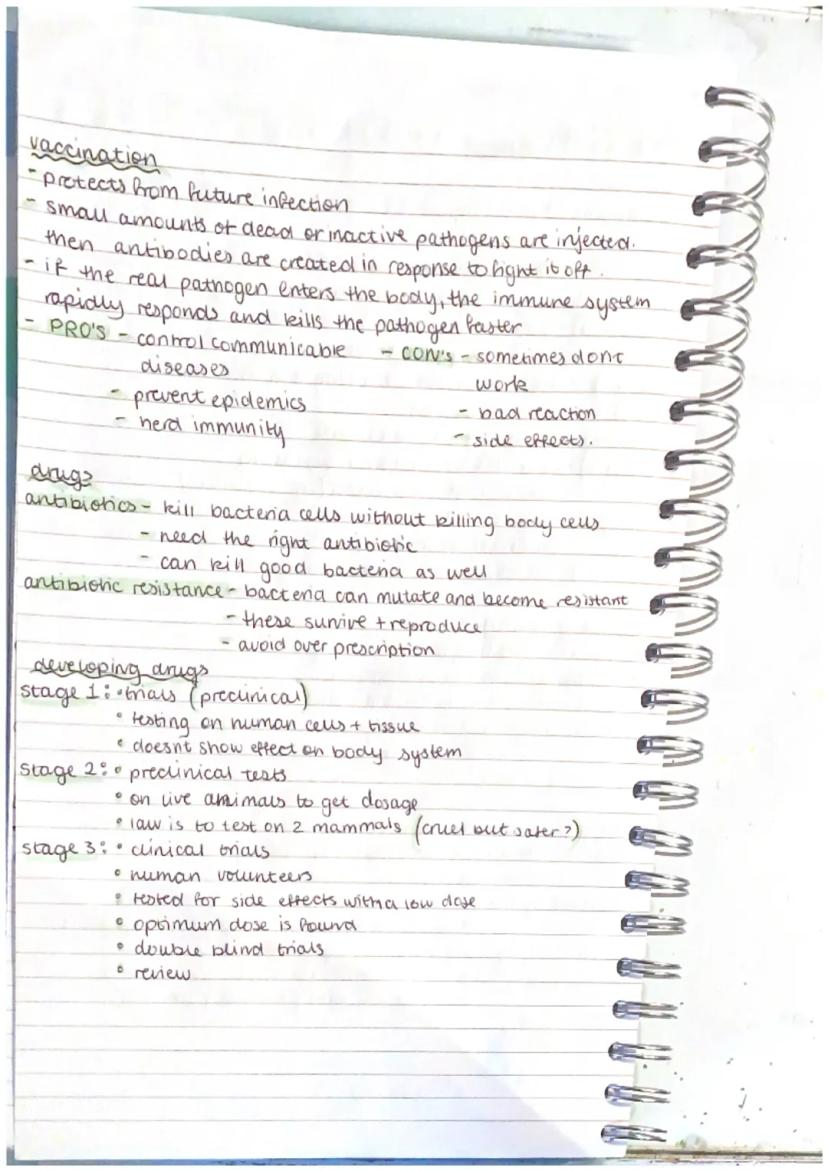 vaccination
- protects from future infection
- small amounts of dead or inactive pathogens are injected.
then antibodies are created in response to fight it off.
- if the real pathogen enters the body, the immune system
rapidly responds and kills the pathogen faster
- PRO'S - control communicable - CON'S - sometimes dont
diseases work
- prevent epidemics - bad reaction
- herd immunity - side effects.
drugs
antibiotics - kill bacteria cells without killing body cells
- need the right antibiotic
- can kill good bacteria as well
antibiotic resistance - bacteria can mutate and become resistant
- these survive + reproduce
- avoid over prescription
developing drugs
stage 1: • trials (preclinical)
• testing on human cells + tissue
• doesnt show effect on body system
stage 2: • preclinical tests
• on live animals to get dosage
• law is to test on 2 mammals (cruel but safer?)
stage 3: • clinical trials
• human volunteers
• tested for side effects with a low dose
• optimum dose is found
• double blind trials
• review